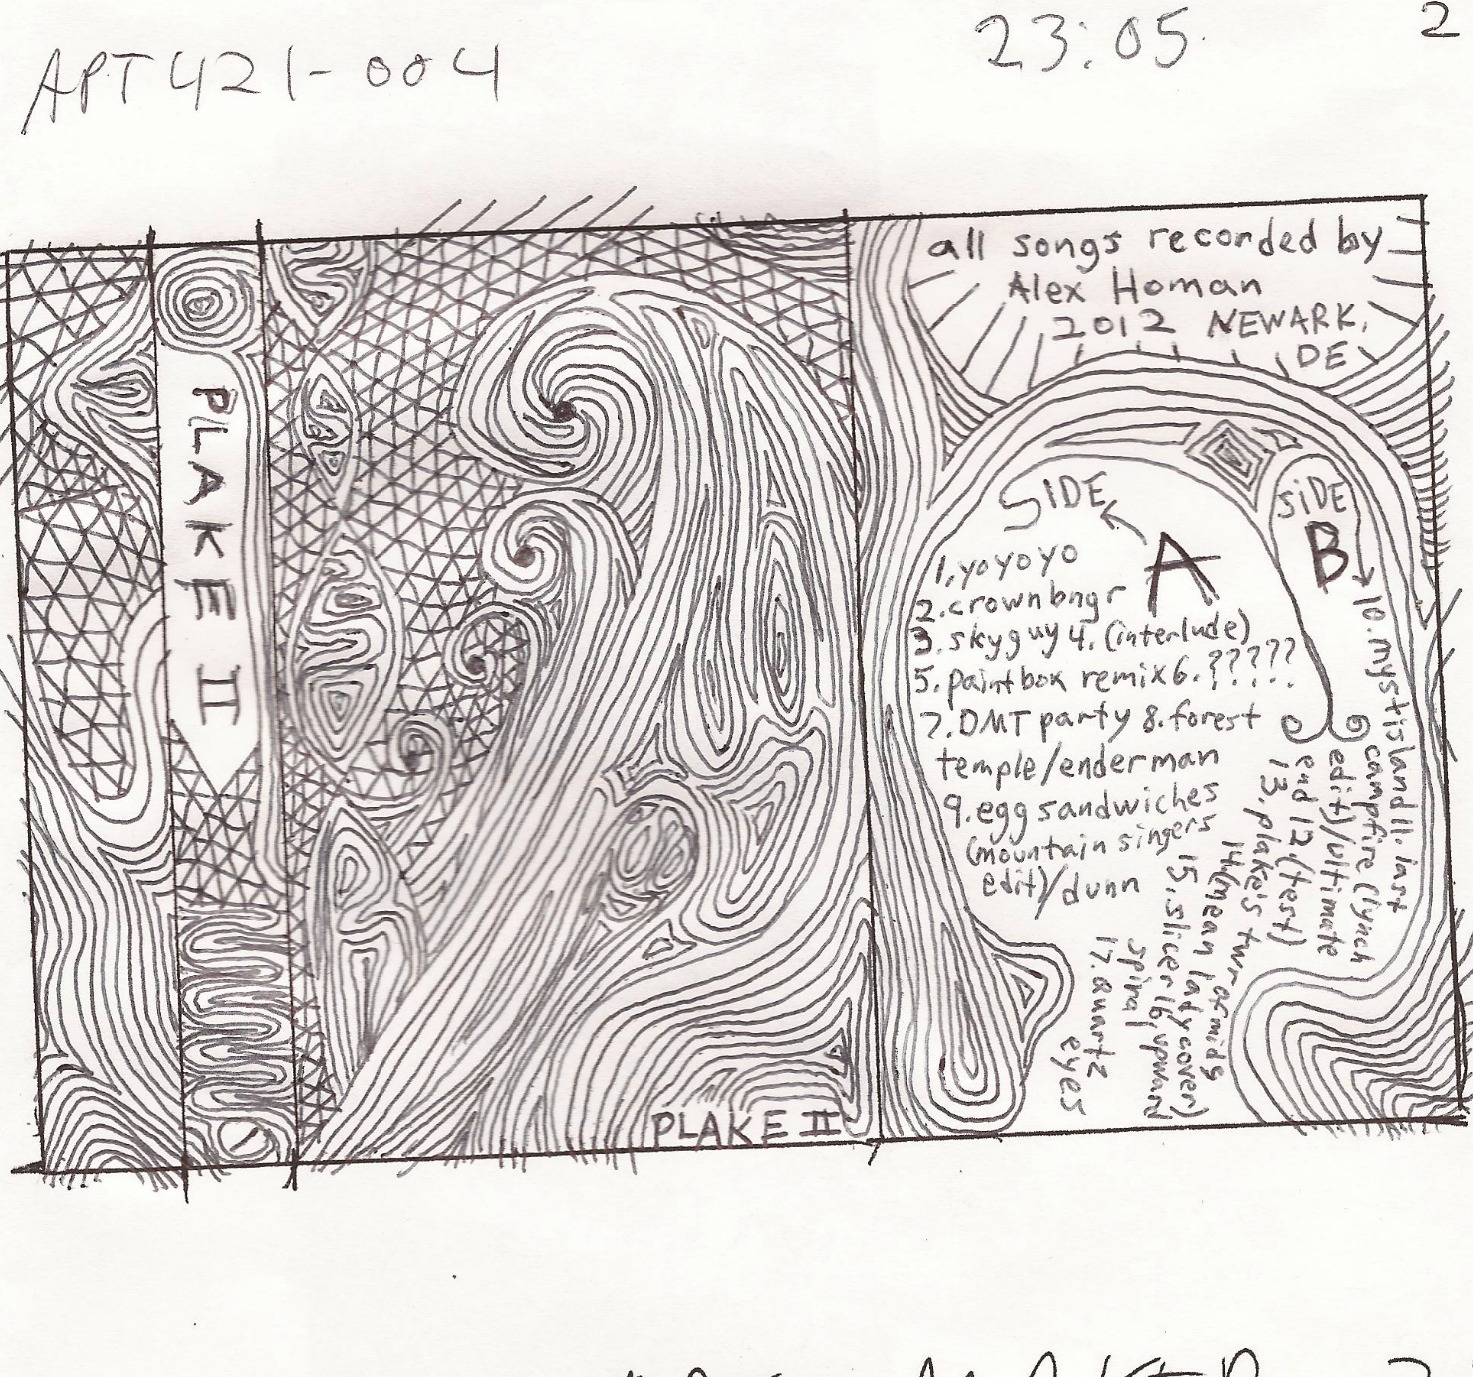 APT421-004
23:05
2
PLAKE II
PLAKE II
all songs recorded by
Alex Homan
2012 NEWARK,
DE
SIDE
A
1. yoyoyo
2. crownbngr
3. skyguy 4. (interlude)
5. paintbox remix 6. ?????
7. DMT party 8. forest
temple/enderman
9. egg sandwiches
(mountain singers
edit)/dunn
SiDE
B
10. mystisland 11. last
campfire (lynch
edit)/ultimate
end 12 (test)
13. plake's twr of mids
14 (mean lady cover)
15. slicer 16. upward
spiral
17. quartz
eyes